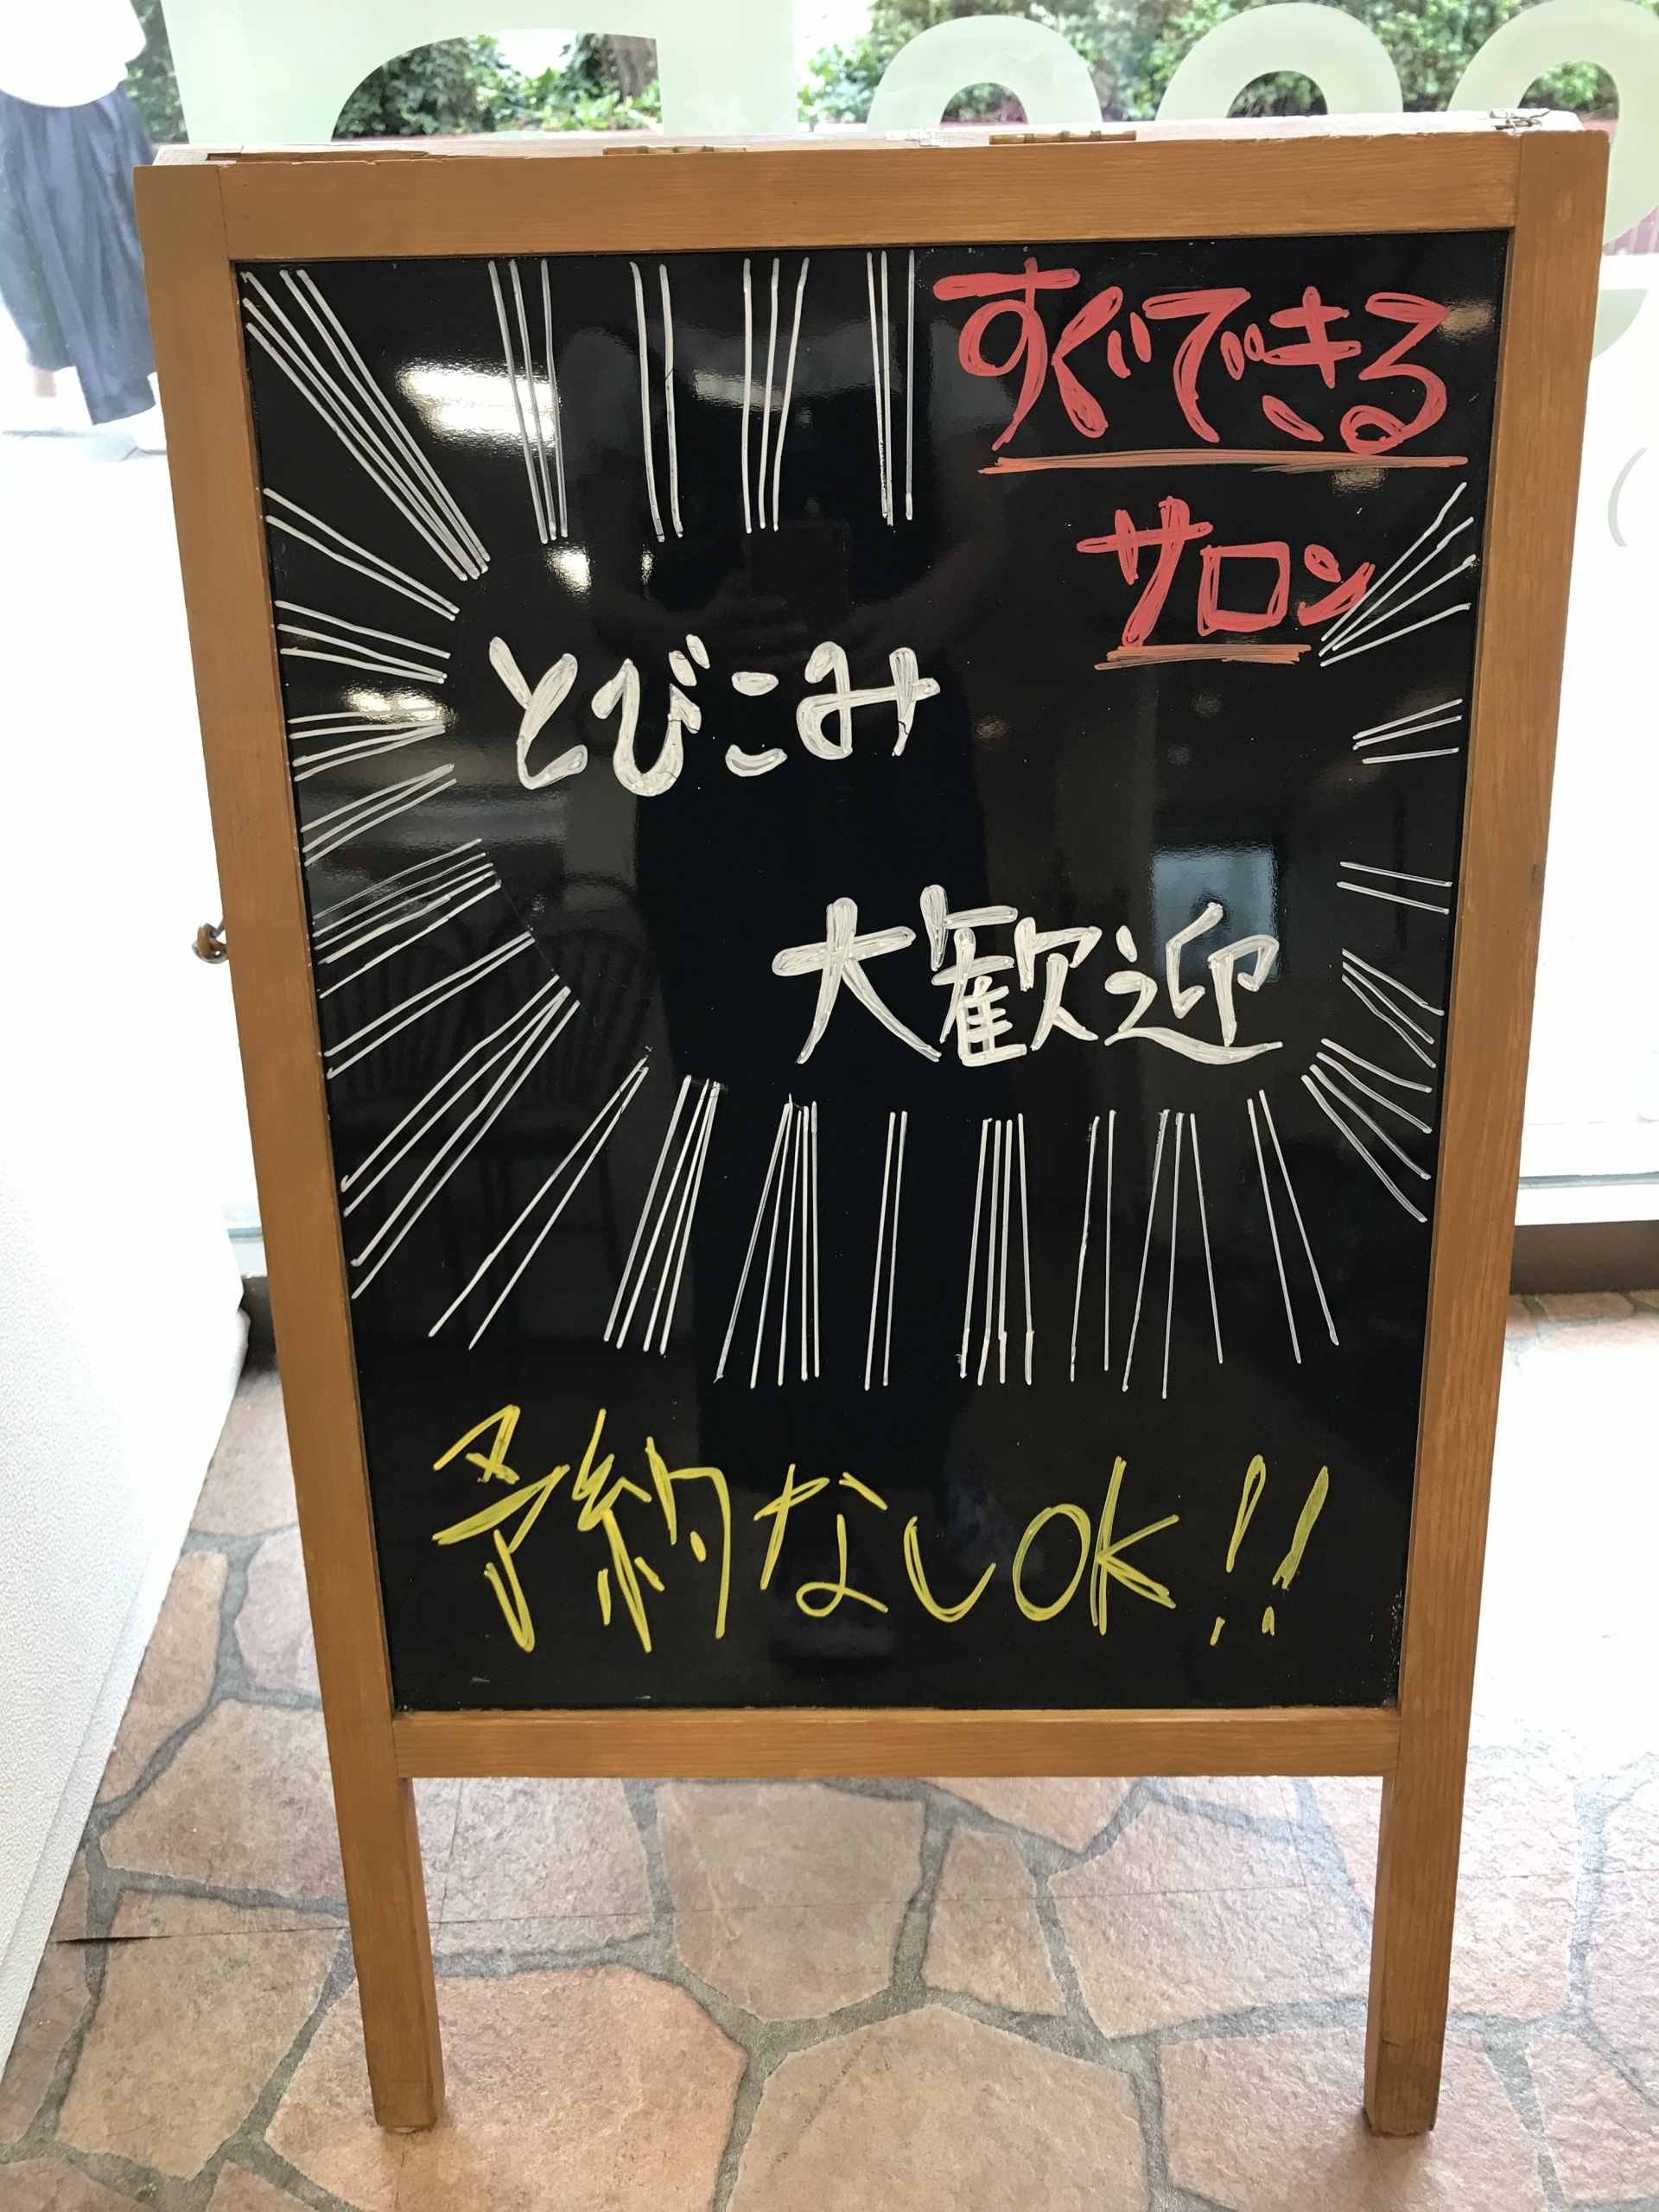 すぐできる
サロン
とびこみ
大歓迎
予約なしOK!!